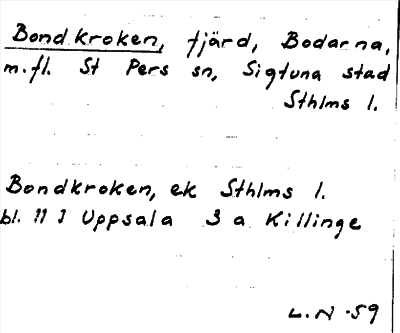 Bondkroken, fjärd, Bodarna,
m.fl. St Pers sn, Sigtuna stad
Sthlms l.
Bondkroken, ek Sthlms l.
bl. 11 I Uppsala 3 a Killinge
L.N. 59